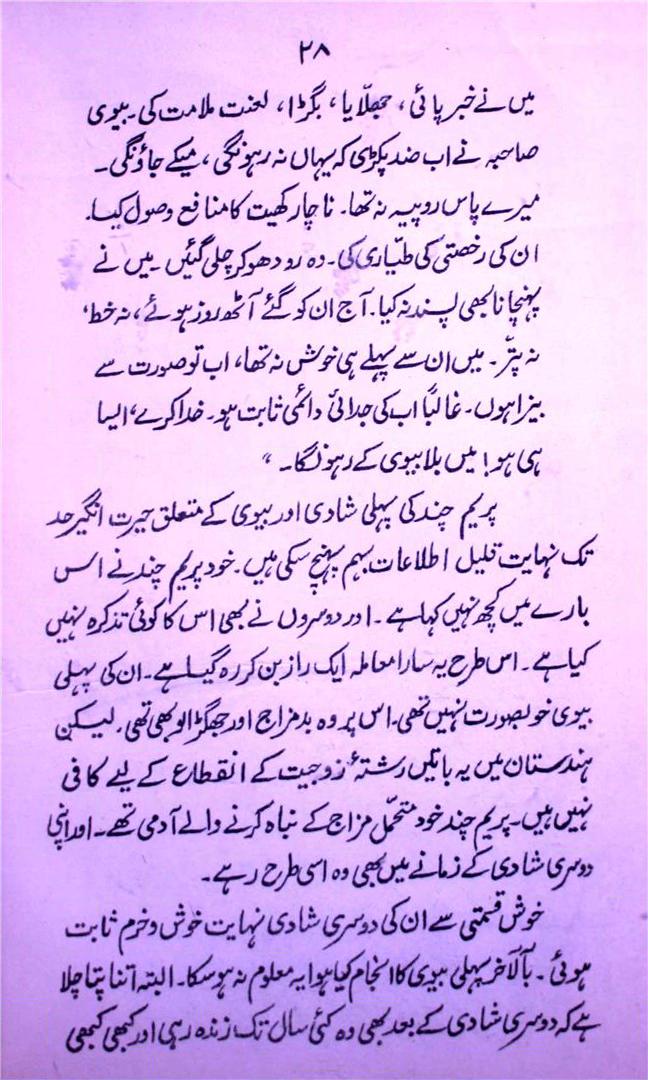 ۲۸
میں نے خبر پائی، جھلّایا، بگڑا، لعنت ملامت کی۔ بیوی
صاحبہ نے اب ضد پکڑی کہ یہاں نہ رہونگی، میکے جاؤنگی۔
میرے پاس روپیہ نہ تھا۔ ناچار کھیت کا منافع وصول کیا۔
ان کی رخصتی کی طیّاری کی۔ وہ رو دھو کر چلی گئیں۔ میں نے
پہنچانا بھی پسند نہ کیا۔ آج ان کو گئے آٹھ روز ہوئے، نہ خط،
نہ پتّر۔ میں ان سے پہلے ہی خوش نہ تھا، اب تو صورت سے
بیزار ہوں۔ غالباً اب کی جدائی دائمی ثابت ہو۔ خدا کرے، ایسا
ہی ہو! میں بلا بیوی کے رہونگا۔"
پریم چند کی پہلی شادی اور بیوی کے متعلق حیرت انگیز حد
تک نہایت قلیل اطلاعات بہم پہنچ سکی ہیں۔ خود پریم چند نے اس
بارے میں کچھ نہیں کہا ہے۔ اور دوسروں نے بھی اس کا کوئی تذکرہ نہیں
کیا ہے۔ اس طرح یہ سارا معاملہ ایک راز بن کر رہ گیا ہے۔ ان کی پہلی
بیوی خوبصورت نہیں تھی۔ اس پر وہ بدمزاج اور جھگڑالو بھی تھی۔ لیکن
ہندستان میں یہ باتیں رشتۂ زوجیت کے انقطاع کے لیے کافی
نہیں ہیں۔ پریم چند خود متحمّل مزاج کے نباہ کرنے والے آدمی تھے۔ اور اپنی
دوسری شادی کے زمانے میں بھی وہ اسی طرح رہے۔
خوش قسمتی سے ان کی دوسری شادی نہایت خوش و خرم ثابت
ہوئی۔ بالآخر پہلی بیوی کا انجام کیا ہوا یہ معلوم نہ ہوسکا۔ البتہ اتنا پتا چلا
ہے کہ دوسری شادی کے بعد بھی وہ کئی سال تک زندہ رہی اور کبھی کبھی